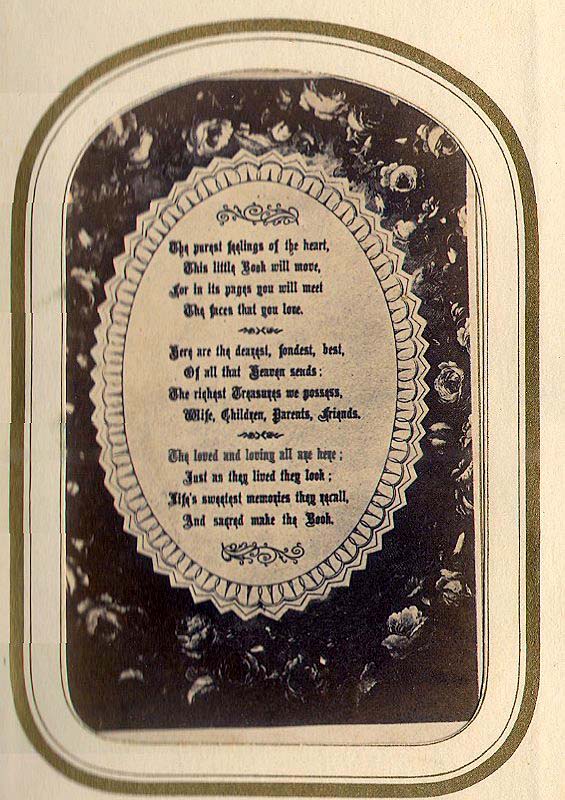 The purest feelings of the heart,
This little Book will move,
For in its pages you will meet
The faces that you love.
Here are the dearest, fondest, best,
Of all that Heaven sends;
The richest Treasures we possess,
Wife, Children, Parents, Friends.
The loved and loving all are here;
Just as they lived they look;
Life's sweetest memories they recall,
And sacred make the Book.